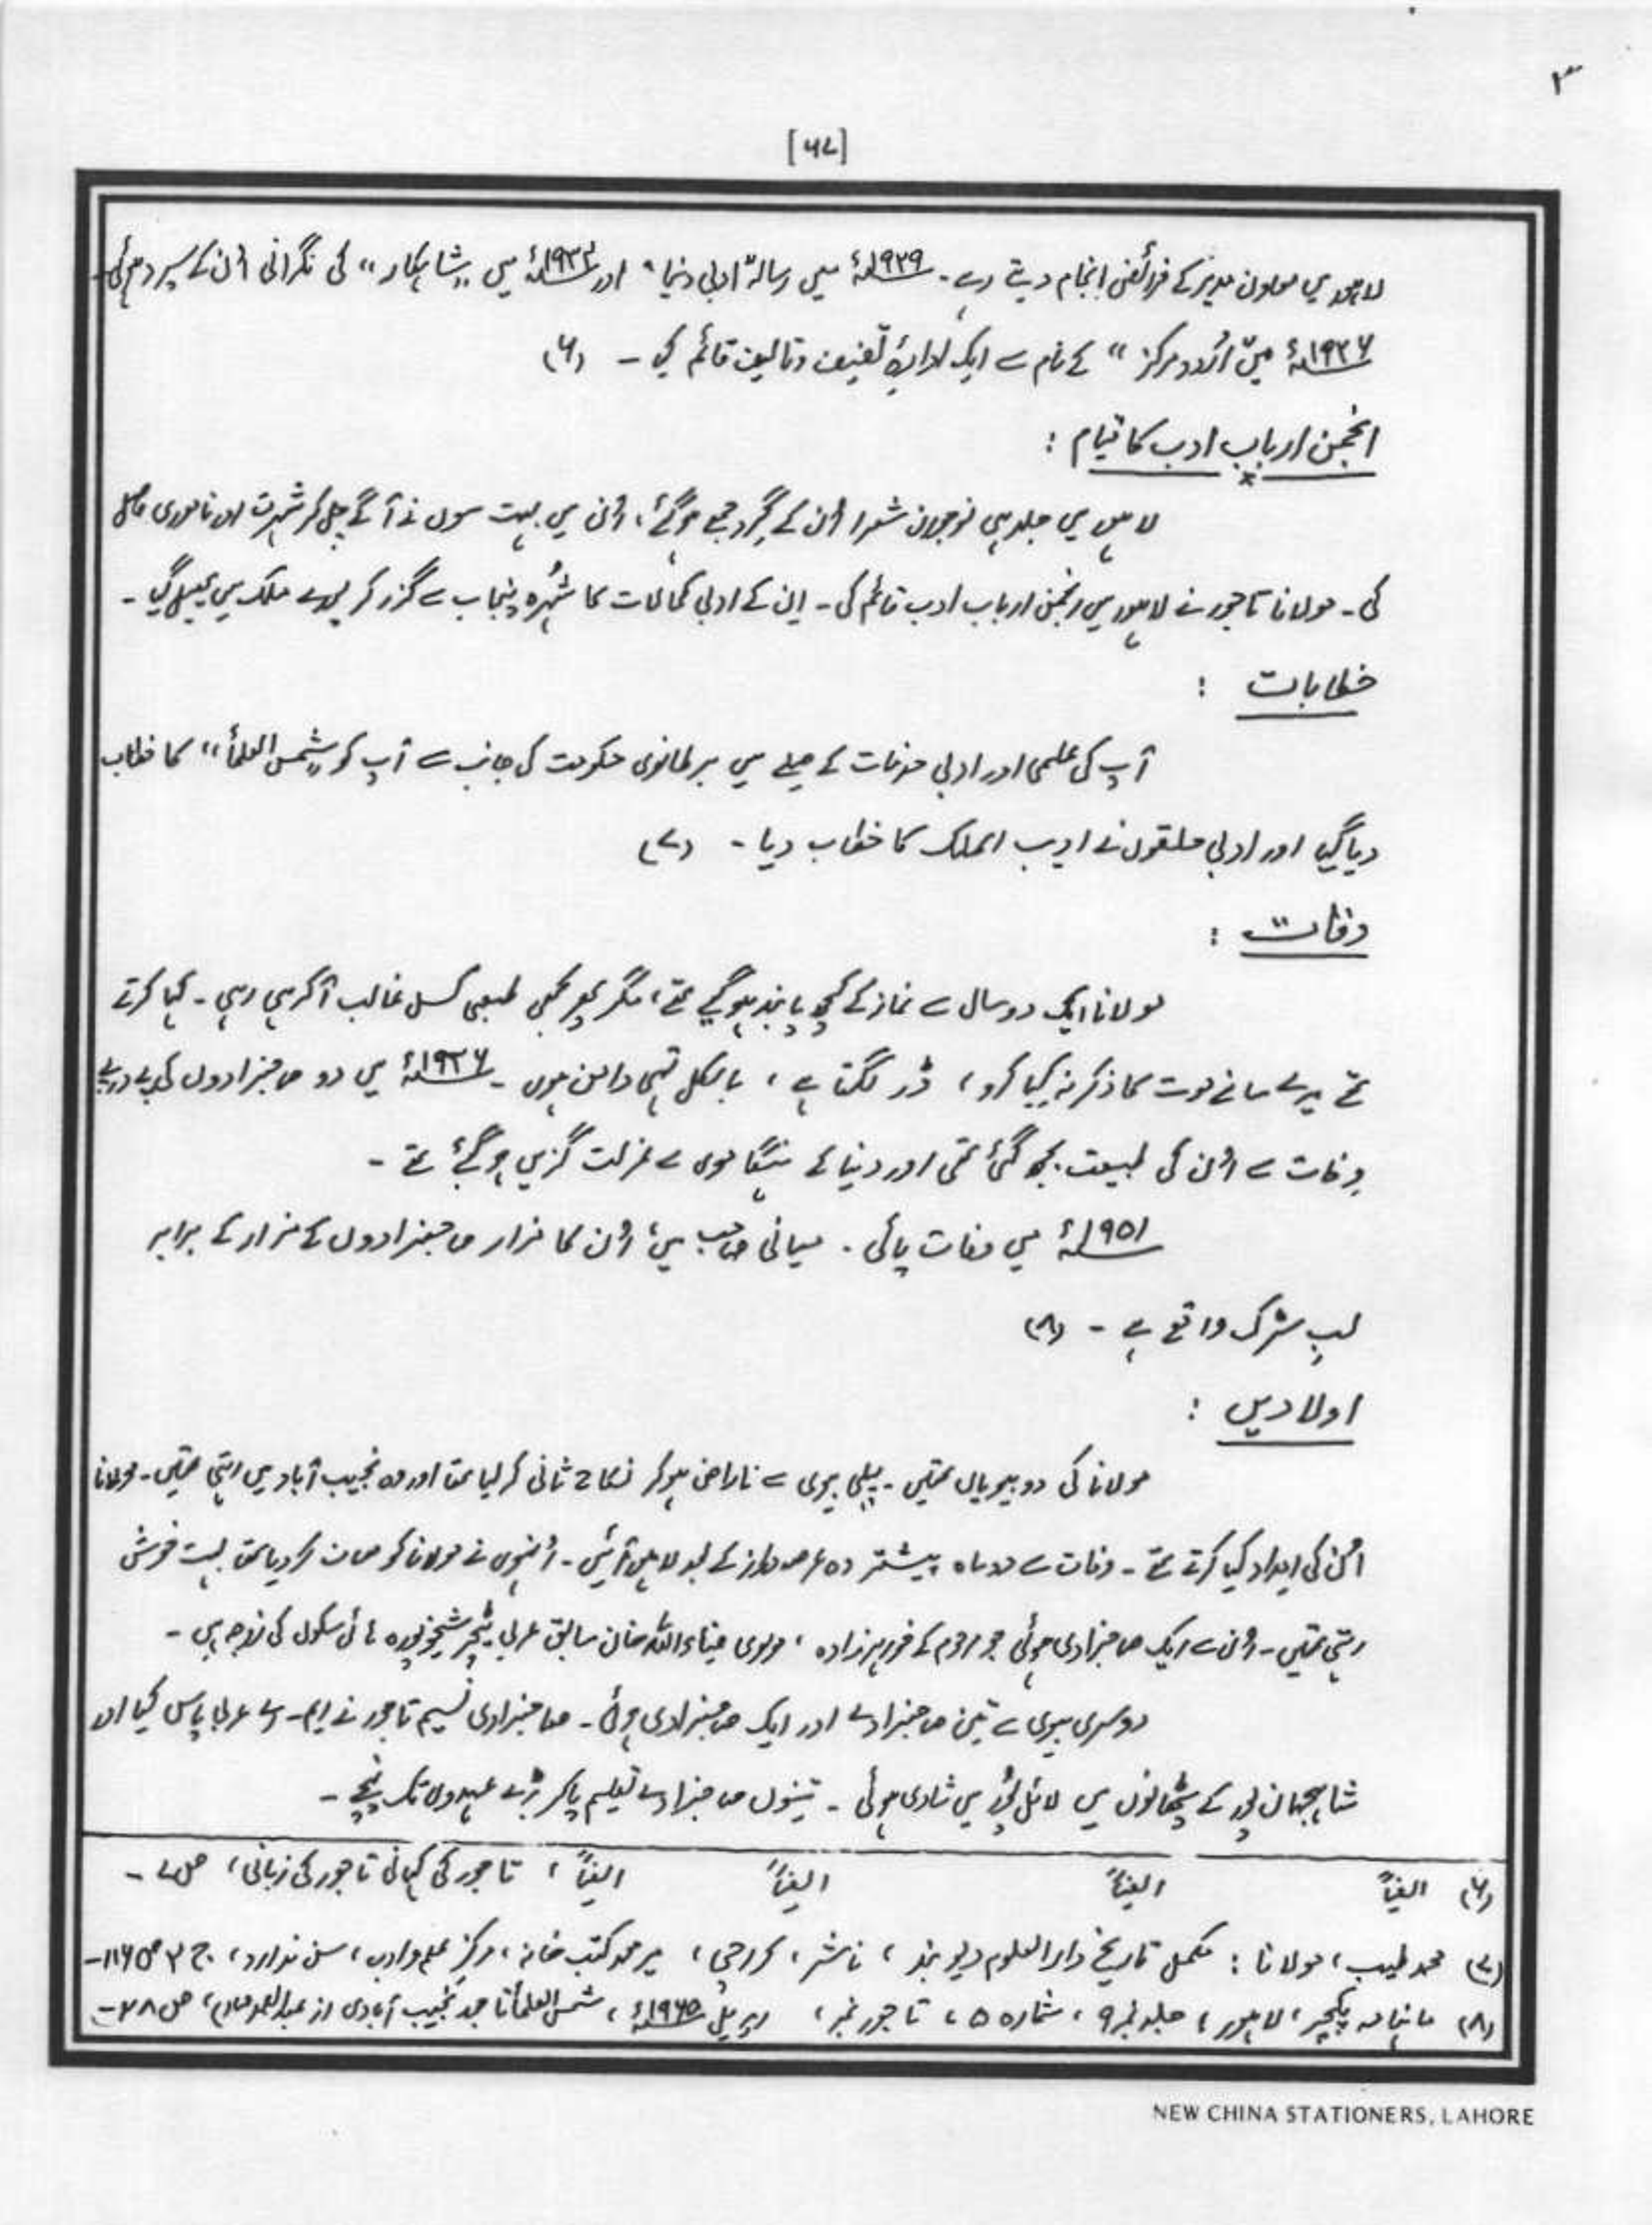 ۳
[۶۷]
لاہور میں معاون مدیر کے فرائض انجام دیتے رہے۔ ۱۹۲۹ء میں رسالہ "ادبی دنیا" اور ۱۹۳۴ء میں "شاہکار" کی نگرانی اُن کے سپرد ہوئی۔
۱۹۲۶ء میں "اُردو مرکز" کے نام سے ایک ادارۂ تصنیف و تالیف قائم کیا ۔ (۶)
انجمن اربابِ ادب کا قیام :
لاہور میں جلد ہی نوجوان شعرا اُن کے گِرد جمع ہو گئے، اُن میں بہت سوں نے آگے چل کر شہرت اور ناموری حاصل
کی ۔ مولانا تاجور نے لاہور میں انجمن ارباب ادب قائم کی ۔ اِن کے ادبی کمالات کا شُہرہ پنجاب سے گزر کر پورے ملک میں پھیل گیا ۔
خطابات :
آپ کی علمی اور ادبی خدمات کے صلے میں برطانوی حکومت کی جانب سے آپ کو "شمس العلمأ" کا خطاب
دیا گیا اور ادبی حلقوں نے ادیب الملک کا خطاب دیا ۔ (۷)
وفات :
مولانا ایک دو سال سے نماز کے کچھ پابند ہو گئے تھے، مگر پھر بھی طبعی کسل غالب آ کر ہی رہی ۔ کہا کرتے
تھے میرے سامنے موت کا ذکر نہ کیا کرو، ڈر لگتا ہے، بالکل تہی دامن ہوں ۔ ۱۹۴۶ء میں دو صاحبزادوں کی پے در پے
وفات سے اُن کی طبیعت بجھ گئی تھی اور دنیا کے ہنگاموں سے عزلت گزیں ہو گئے تھے ۔
۱۹۵۱ء میں وفات پائی ۔ میانی صاحب میں اُن کا مزار صاحبزادوں کے مزار کے برابر
لبِ سڑک واقع ہے ۔ (۸)
اولادیں :
مولانا کی دو بیویاں تھیں ۔ پہلی بیوی سے ناراض ہو کر نکاح ثانی کر لیا تھا اور وہ نجیب آباد میں رہتی تھیں ۔ مولانا
اُن کی امداد کیا کرتے تھے ۔ وفات سے دو ماہ پیشتر وہ عرصہ دراز کے بعد لاہور آئیں ۔ اُنہوں نے مولانا کو معاف کر دیا تھا بہت خوش
رہتی تھیں ۔ اُن سے ایک صاحبزادی ہوئی جو مرحوم کے خواہر زادہ، مولوی ضیاء اللہ خان سابق عربی ٹیچر شیخوپورہ ہائی سکول کی زوجہ ہیں ۔
دوسری بیوی سے تین صاحبزادے اور ایک صاحبزادی ہوئی ۔ صاحبزادی نسیم تاجور نے ایم ۔ اے عربی پاس کیا اور
شاہجہان پور کے پٹھانوں میں لائل پُور میں شادی ہوئی ۔ تینوں صاحبزادے تعلیم پا کر بڑے عہدوں تک پہنچے ۔
(۶) ایضاً ایضاً ایضاً ایضاً، تاجور کی کہانی تاجور کی زبانی، ص ۷ ۔
(۷) محمد طیب، مولانا : مکمل تاریخ دارالعلوم دیوبند، ناشر، کراچی، میر محمد کتب خانہ، مرکز علم و ادب، سن ندارد، ج ۲ ص ۱۱۶ ۔
(۸) ماہنامہ پکچر، لاہور، جلد نمبر ۹، شمارہ ۵، تاجور نمبر، اپریل ۱۹۶۵ء، شمس العلمأ تاجور نجیب آبادی از عبدالصمد صارم، ص ۴۸ ۔
NEW CHINA STATIONERS, LAHORE